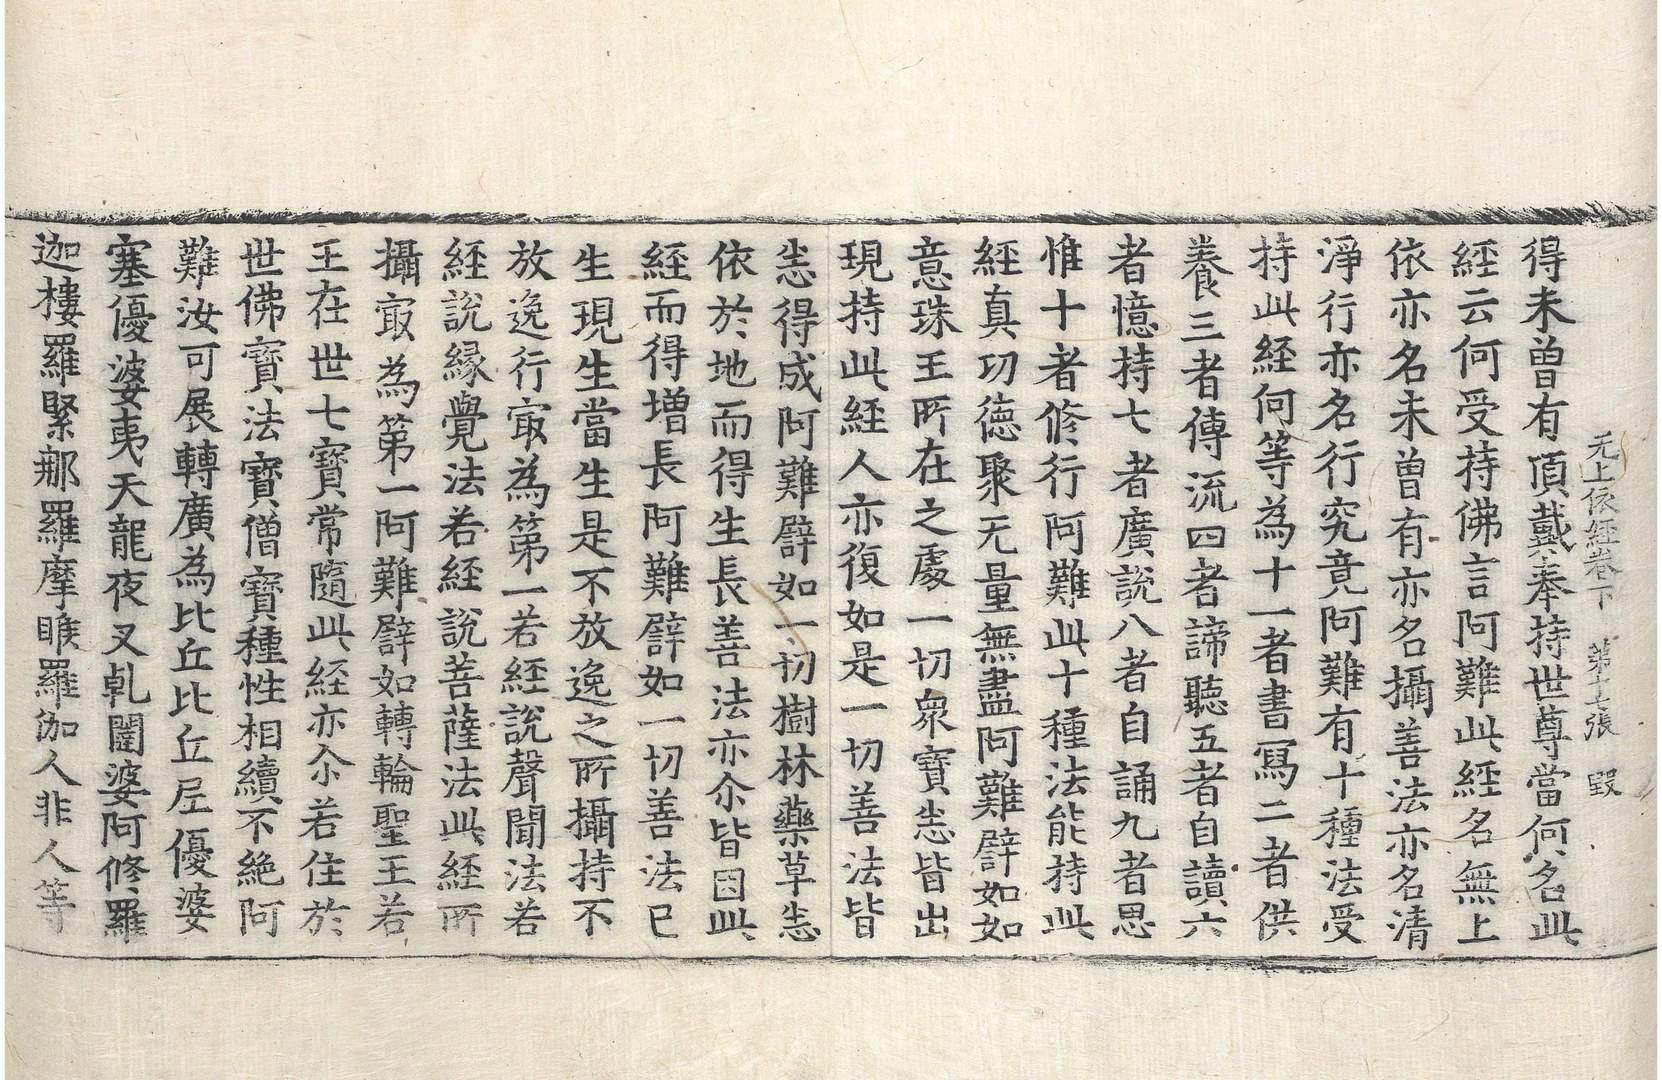 无上依經卷下 第十七張 毀
得未曾有頂戴奉持世尊當何名此
經云何受持佛言阿難此經名無上
依亦名未曾有亦名攝善法亦名清
淨行亦名行究竟阿難有十種法受
持此経何等為十一者書寫二者供
養三者傳流四者諦聽五者自讀六
者憶持七者廣說八者自誦九者思
惟十者修行阿難此十種法能持此
經真功德聚无量無盡阿難譬如如
意珠王所在之處一切衆寶恙皆出
現持此経人亦復如是一切善法皆
恙得成阿難譬如一切樹林藥草恙
依於地而得生長善法亦尒皆因此
經而得増長阿難譬如一切善法已
生現生當生是不放逸之所攝持不
放逸行㝡為第一若経說聲聞法若
経說縁覺法若経說菩薩法此経所
攝㝡為第一阿難譬如轉輪聖王若
王在世七寶常隨此経亦尒若住於
世佛寶法寶僧寶種性相續不絶阿
難汝可展轉廣為比丘比丘尼優婆
塞優婆夷天龍夜叉乹闥婆阿修羅
迦樓羅緊那羅摩睺羅伽人非人等